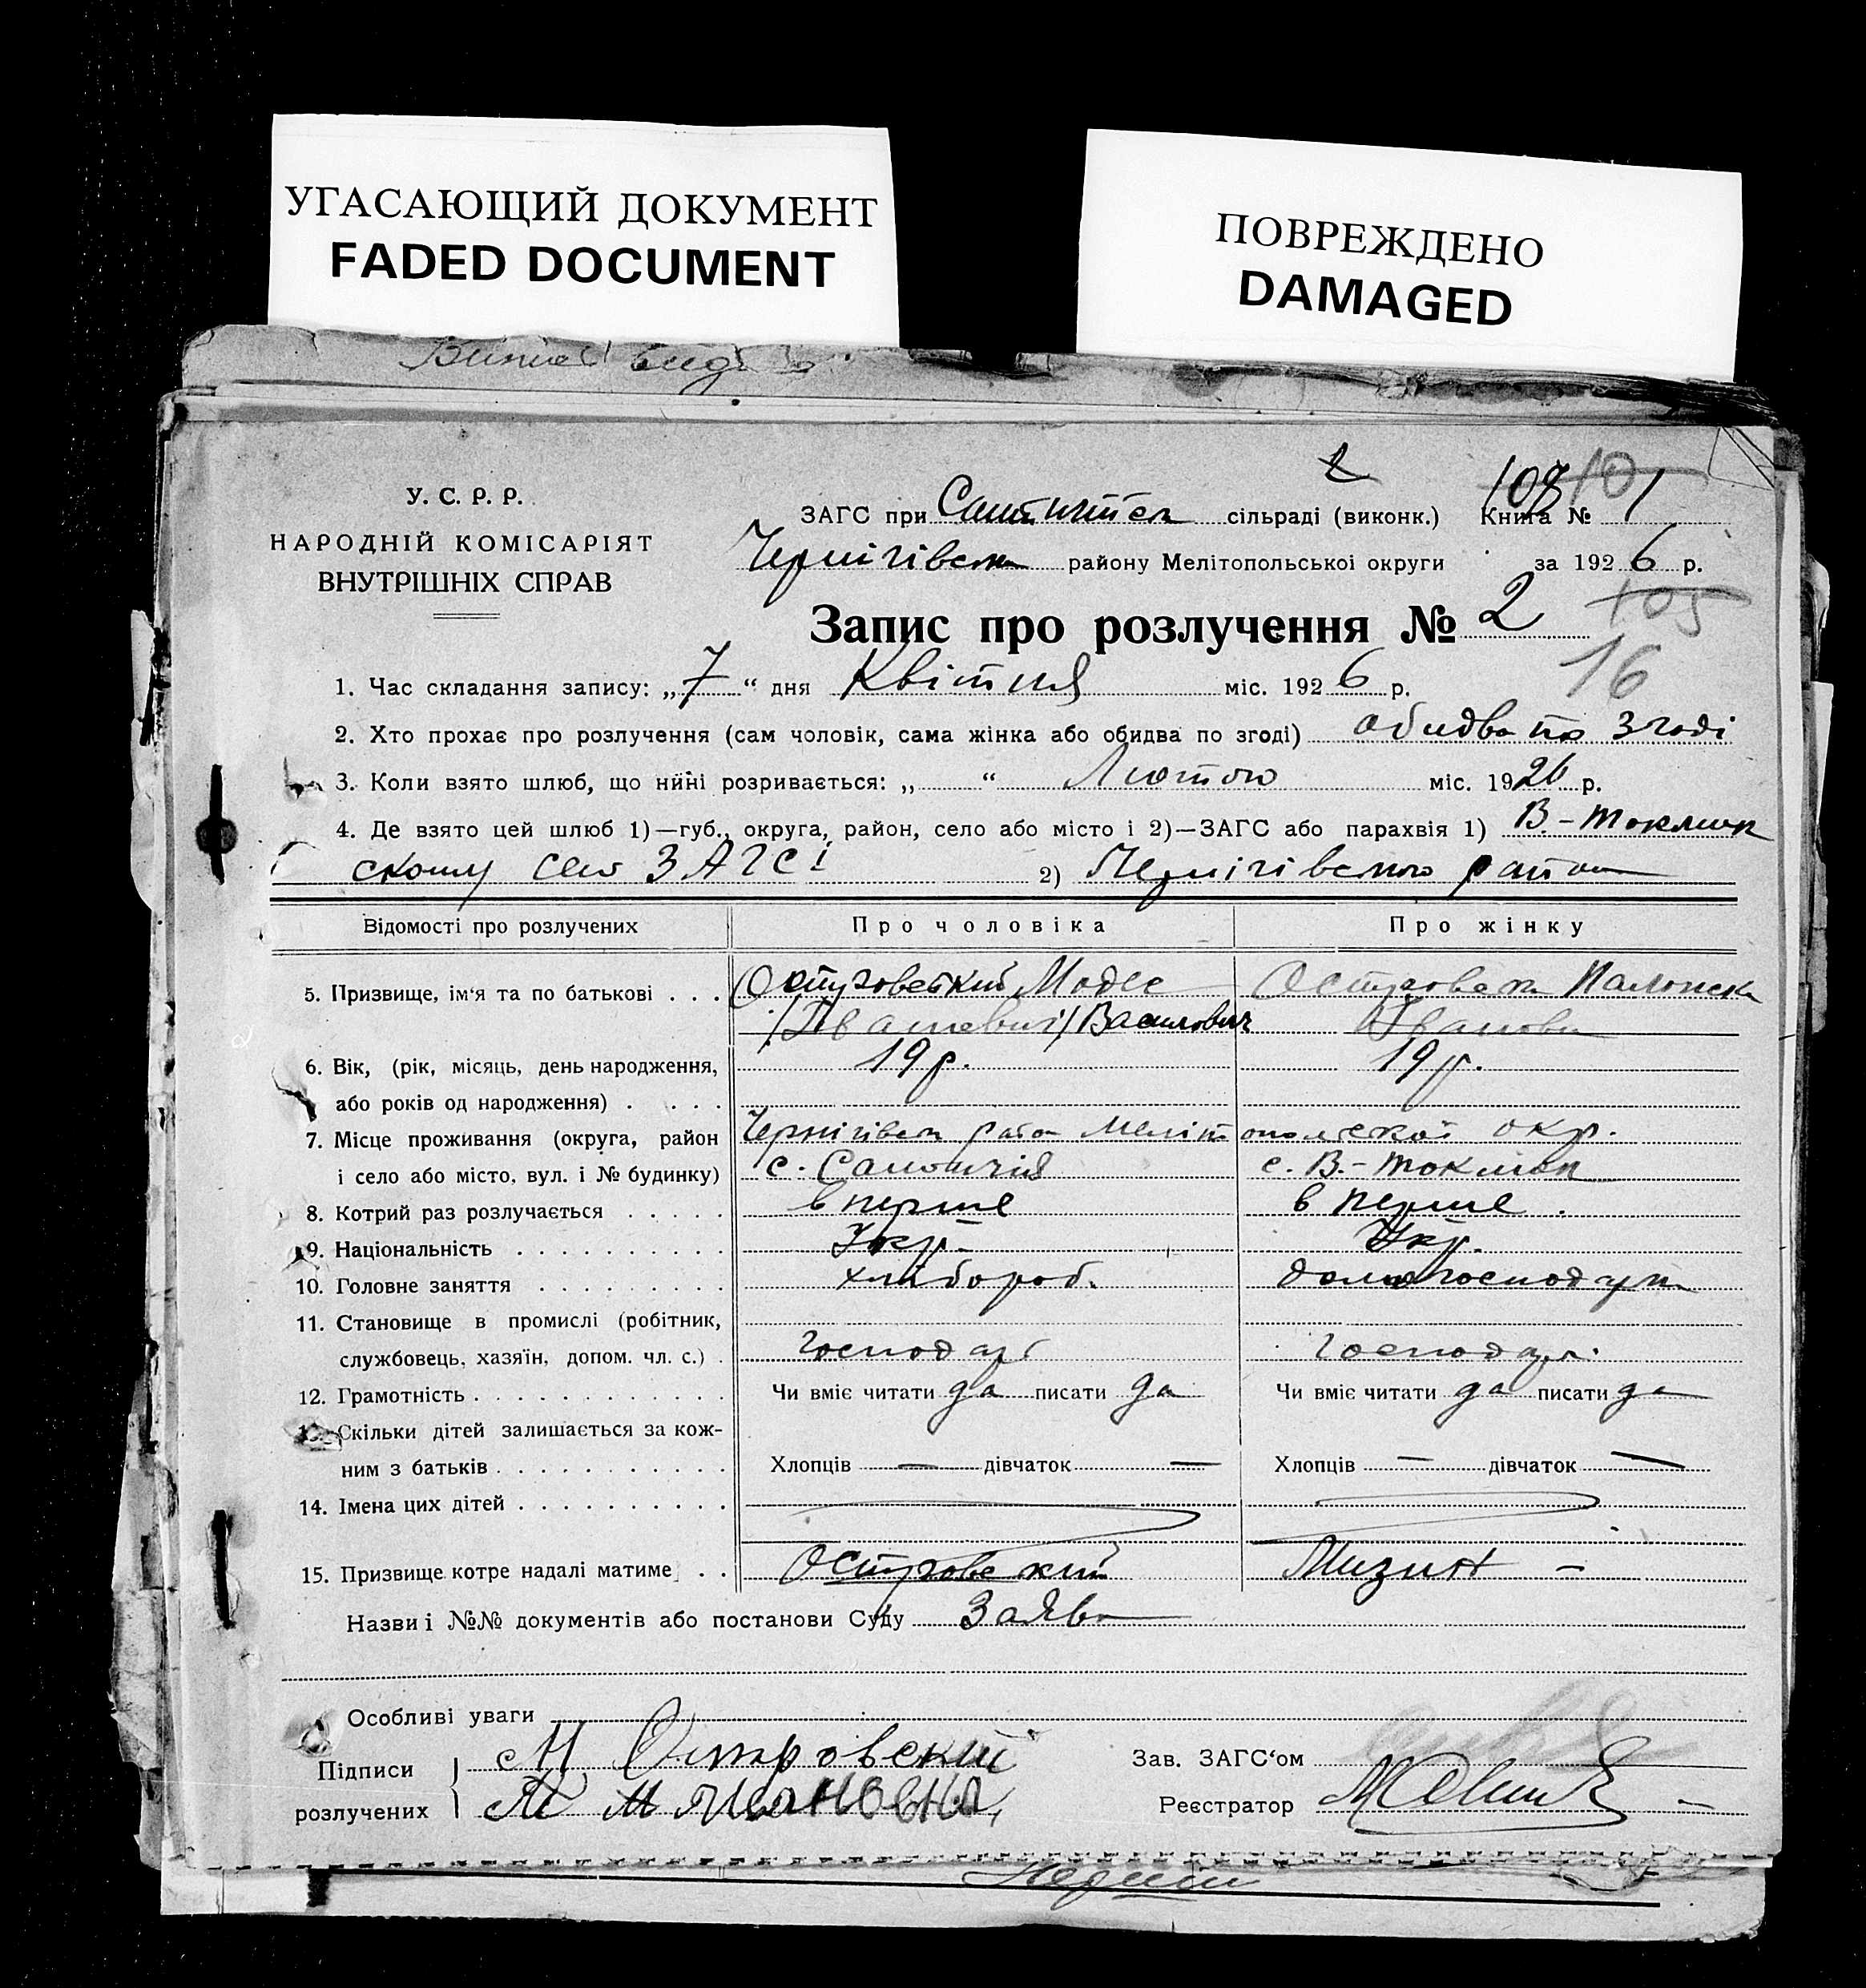 УГАСАЮЩИЙ ДОКУМЕНТ
FADED DOCUMENT
ПОВРЕЖДЕНО
DAMAGED
У. С. Р. Р.
НАРОДНІЙ КОМІСАРІЯТ
ВНУТРІШНІХ СПРАВ
ЗАГС при сільраді (виконк.) Книга № 1
Чернігівськ району Мелітопольської округи за 1926 р.
Запис про розлучення № 2
105
16
1. Час складання запису: „7“ дня Квітня міс. 1926 р.
2. Хто прохає про розлучення (сам чоловік, сама жінка або обидва по згоді) обидва по згоді
3. Коли взято шлюб, що нині розривається: „ “ Лютого міс. 1926 р.
4. Де взято цей шлюб 1)—губ., округа, район, село або місто і 2)—ЗАГС або парахвія 1) В.-Токмак
скому ЗАГСі 2) Чернігівського району
Відомості про розлучених Про чоловіка Про жінку
5. Призвище, ім'я та по батькові . . . Островский Василович
6. Вік, (рік, місяць, день народження, 19 р. 19 р.
або років од народження) . . . .
7. Місце проживання (округа, район Чернігівськ район Мелітопольскої окр.
і село або місто, вул. і № будинку) с. с. В.-Токмак
8. Котрий раз розлучається . . . . . вперше вперше
9. Національність . . . . . . . . . . Укр. Укр.
10. Головне заняття . . . . . . . . . хлібороб.
11. Становище в промислі (робітник,
службовець, хазяїн, допом. чл. с.) . господар господар.
12. Грамотність . . . . . . . . . . . . Чи вміє читати да писати да Чи вміє читати да писати да
Скільки дітей залишається за кож-
ним з батьків . . . . . . . . . . . Хлопців — дівчаток — Хлопців — дівчаток —
14. Імена цих дітей . . . . . . . . . .
15. Призвище котре надалі матиме . . Островский Мизин —
Назви і №№ документів або постанови Суду Заява
Особливі уваги
Підписи М. Островский Зав. ЗАГС'ом
розлучених Реєстратор